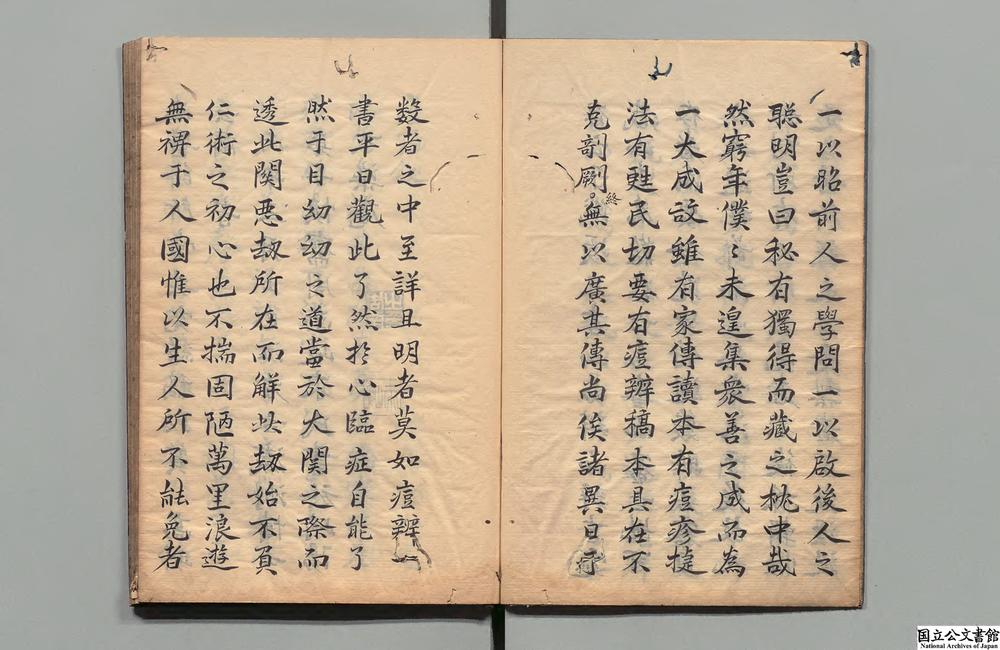 一以昭前人之學問一以啟後人之
聰明豈曰秘有獨得而藏之枕中哉
然窮年僕〻未遑集衆善之成而為
一大成故雖有家傳讀本有痘疹捷
法有甦民切要有痘辨搞本具在不
克剞劂終無以廣其傳尚俟諸異日
数者之中至詳且明者莫如痘辨一
書平日觀此了然於心臨症自能了
然于目幼幼之道當於大関之際而
透此関悪劫所在而解此劫始不負
仁術之初心也不揣固陋萬里浪遊
無裨于人國惟以生人所不能免者
国立公文書館
National Archives of Japan